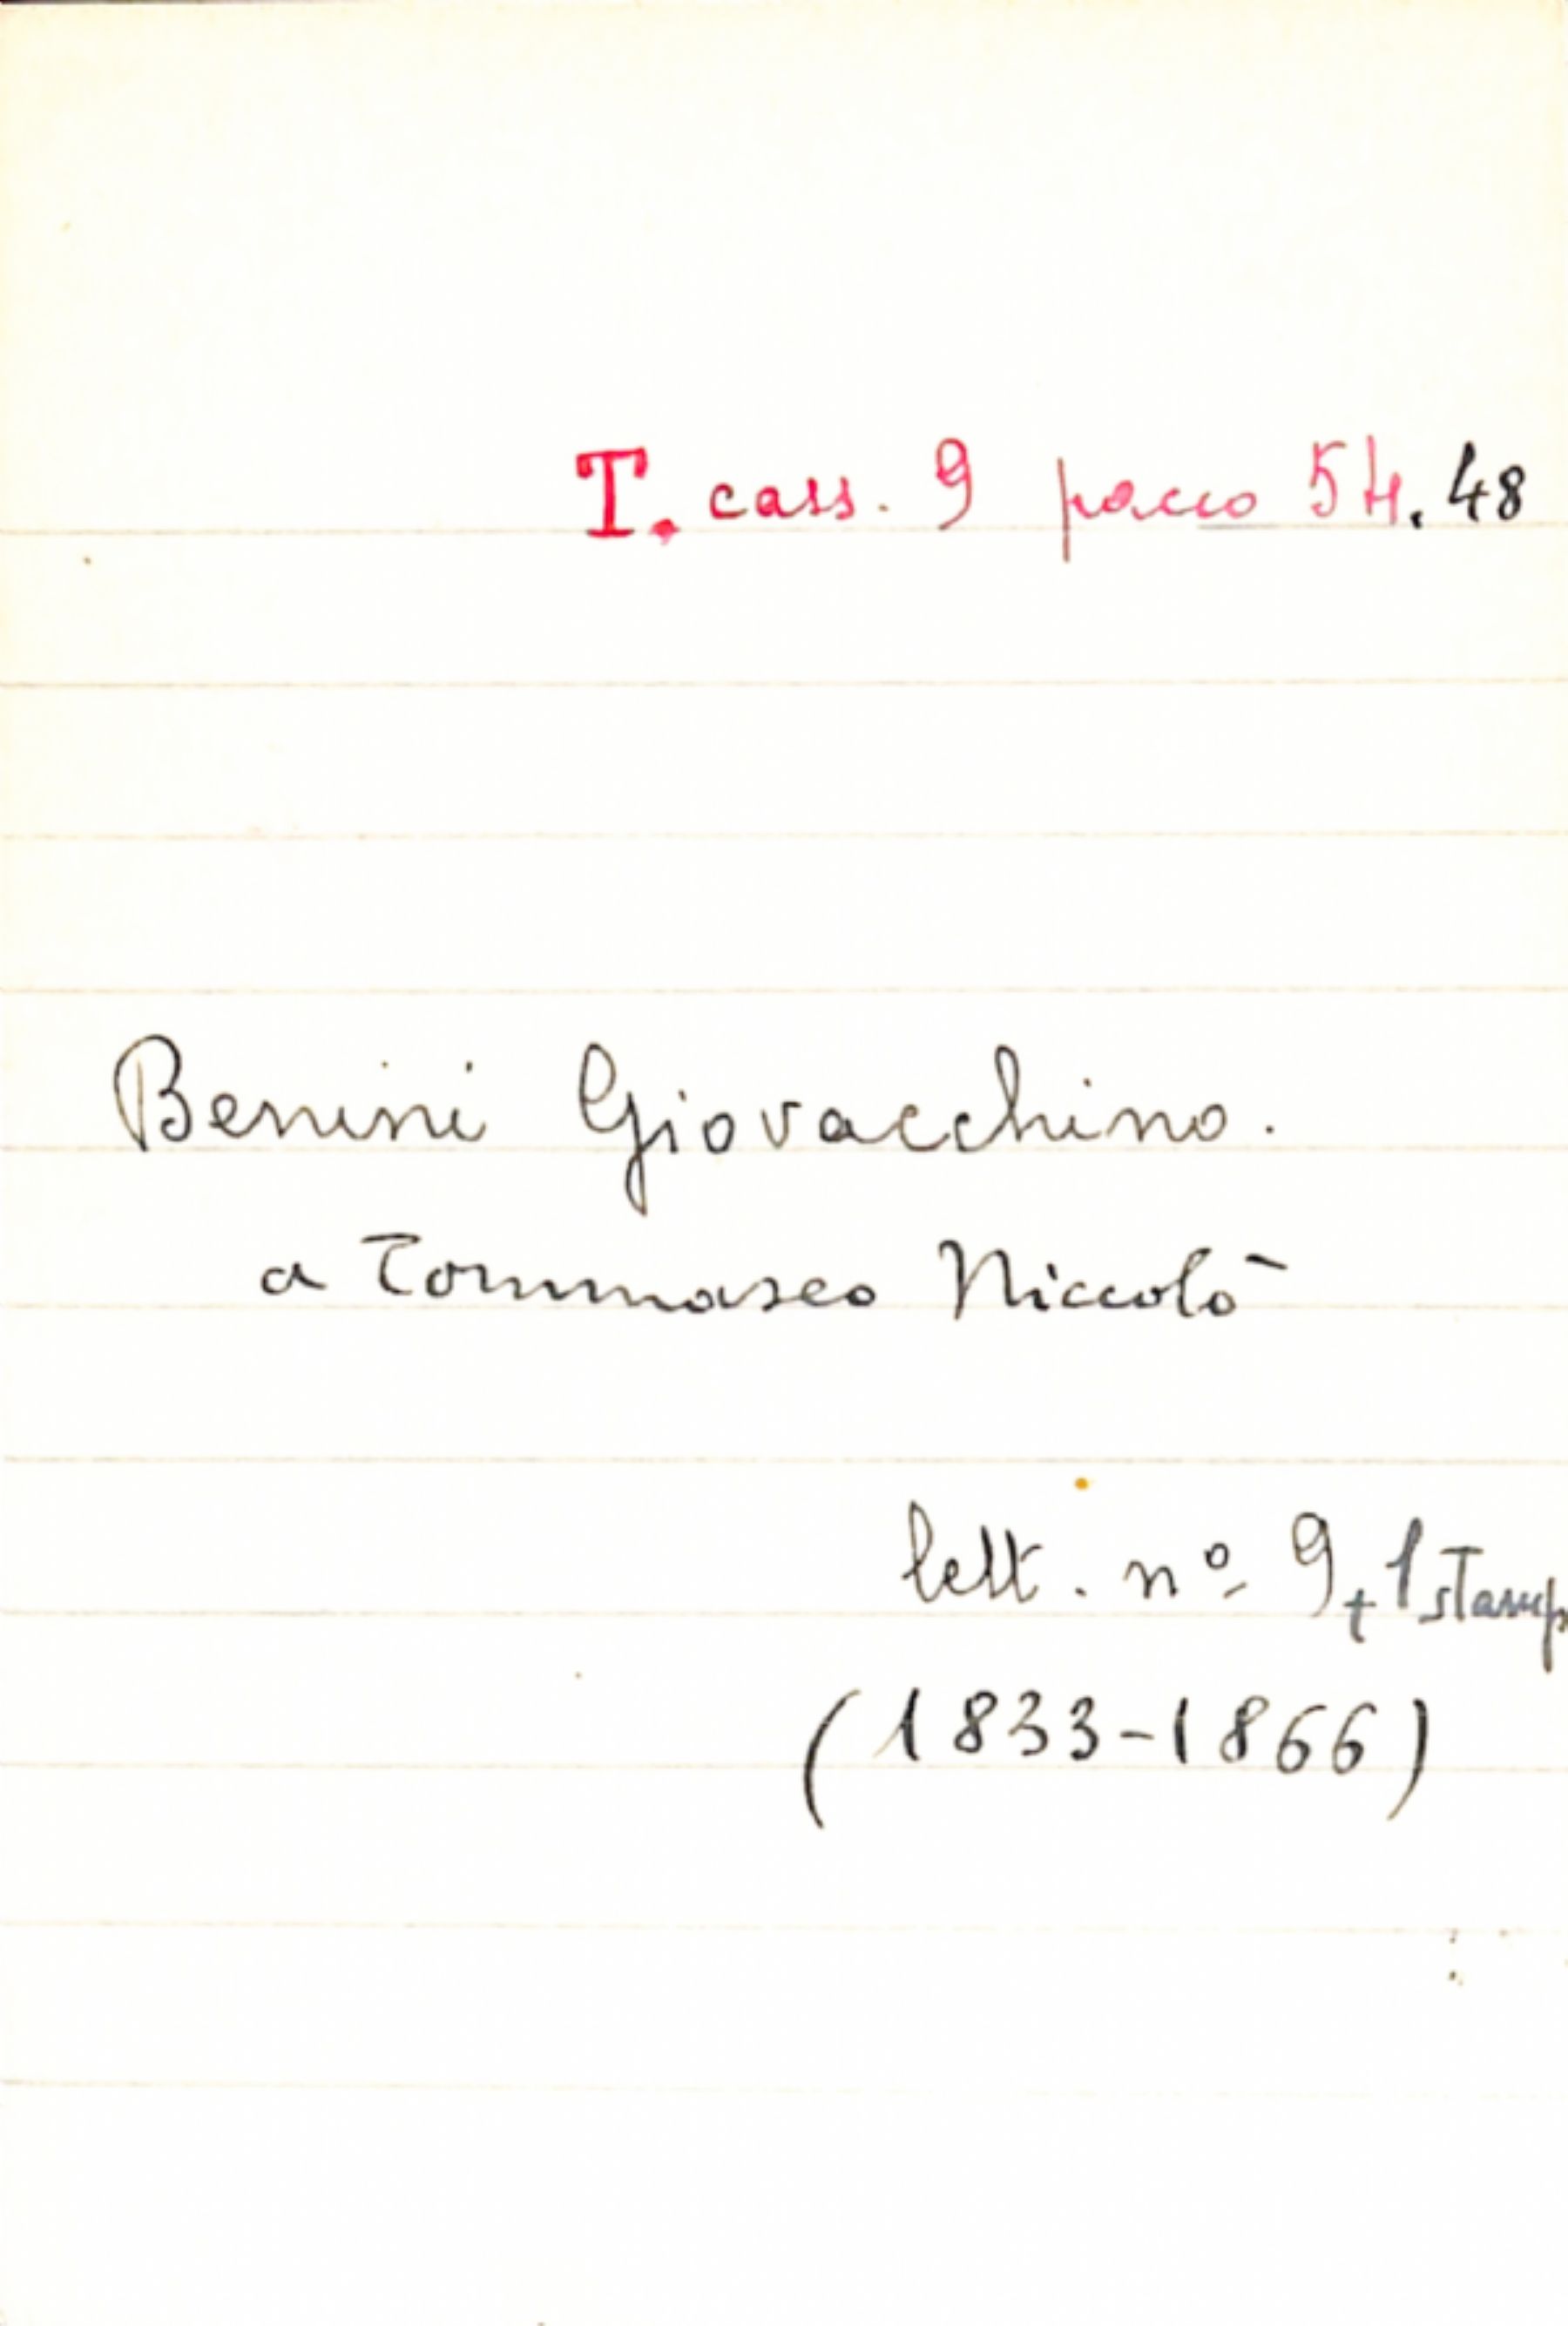 T. cass. 9 pacco 54.48
Benini Giovacchino.
a Tommaseo Niccolò
lett. nº 9 + 1 stamp
(1833-1866)